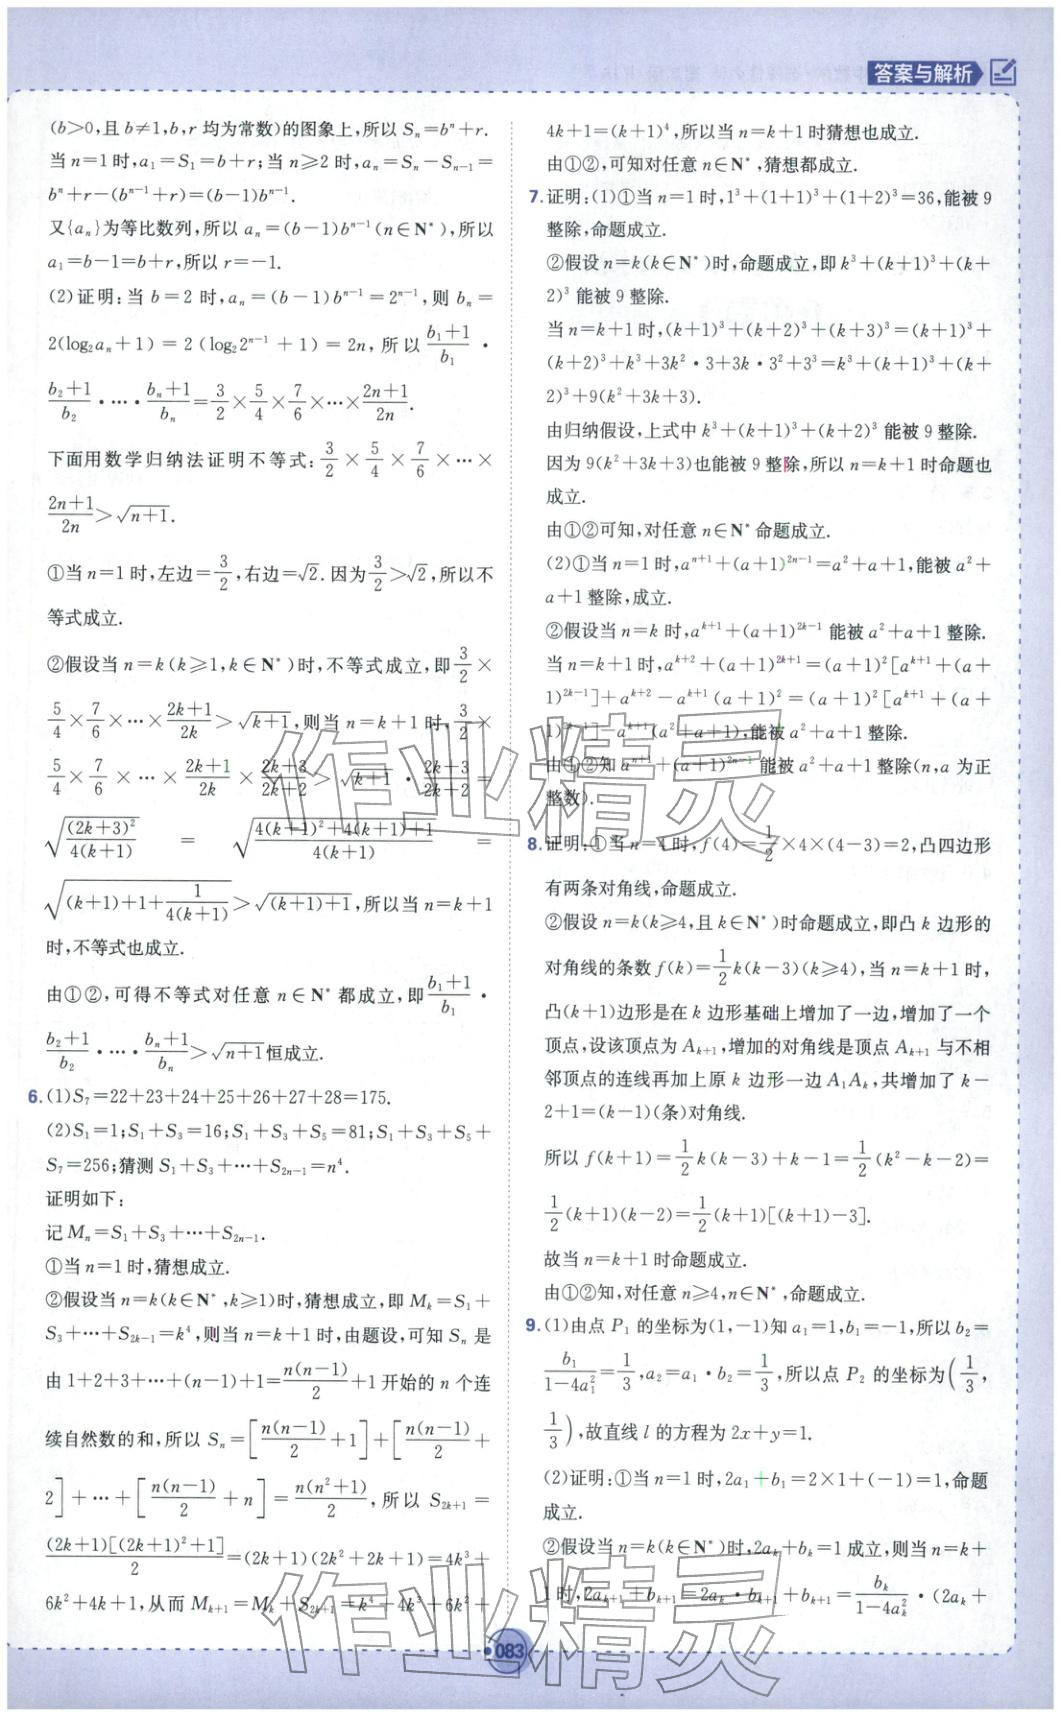 答案与解析
(b>0,且b≠1,b,r均为常数)的图象上,所以Sₙ=bⁿ+r.
当n=1时,a₁=S₁=b+r;当n≥2时,aₙ=Sₙ-Sₙ₋₁=
bⁿ+r-(bⁿ⁻¹+r)=(b-1)bⁿ⁻¹.
又{aₙ}为等比数列,所以aₙ=(b-1)bⁿ⁻¹(n∈N*),所以
a₁=b-1=b+r,所以r=-1.
(2)证明:当b=2时,aₙ=(b-1)bⁿ⁻¹=2ⁿ⁻¹,则bₙ=
2(log₂aₙ+1)=2(log₂2ⁿ⁻¹+1)=2n,所以(b₁+1)/b₁·
(b₂+1)/b₂·…·(bₙ+1)/bₙ=3/2×5/4×7/6×…×(2n+1)/2n.
下面用数学归纳法证明不等式:3/2×5/4×7/6×…×
(2n+1)/2n>√(n+1).
①当n=1时,左边=3/2,右边=√2.因为3/2>√2,所以不
等式成立.
②假设当n=k(k≥1,k∈N*)时,不等式成立,即3/2×
5/4×7/6×…×(2k+1)/2k>√(k+1),则当n=k+1时,3/2×
5/4×7/6×…×(2k+1)/2k×(2k+3)/(2k+2)>√(k+1)·(2k+3)/(2k+2)=
√((2k+3)²/4(k+1))=√((4(k+1)²+4(k+1)+1)/4(k+1))=
√((k+1)+1+1/4(k+1))>√((k+1)+1),所以当n=k+1
时,不等式也成立.
由①②,可得不等式对任意n∈N*都成立,即(b₁+1)/b₁·
(b₂+1)/b₂·…·(bₙ+1)/bₙ>√(n+1)恒成立.
6.(1)S₇=22+23+24+25+26+27+28=175.
(2)S₁=1;S₁+S₃=16;S₁+S₃+S₅=81;S₁+S₃+S₅+
S₇=256;猜测S₁+S₃+…+S₂ₙ₋₁=n⁴.
证明如下:
记Mₙ=S₁+S₃+…+S₂ₙ₋₁.
①当n=1时,猜想成立.
②假设当n=k(k∈N*,k≥1)时,猜想成立,即Mₖ=S₁+
S₃+…+S₂ₖ₋₁=k⁴,则当n=k+1时,由题设,可知Sₙ是
由1+2+3+…+(n-1)+1=n(n-1)/2+1开始的n个连
续自然数的和,所以Sₙ=[n(n-1)/2+1]+[n(n-1)/2+
2]+…+[n(n-1)/2+n]=n(n²+1)/2,所以S₂ₖ₊₁=
(2k+1)[(2k+1)²+1]/2=(2k+1)(2k²+2k+1)=4k³+
6k²+4k+1,从而Mₖ₊₁=Mₖ+S₂ₖ₊₁=k⁴+4k³+6k²+
4k+1=(k+1)⁴,所以当n=k+1时猜想也成立.
由①②,可知对任意n∈N*,猜想都成立.
7.证明:(1)①当n=1时,1³+(1+1)³+(1+2)³=36,能被9
整除,命题成立.
②假设n=k(k∈N*)时,命题成立,即k³+(k+1)³+(k+
2)³能被9整除.
当n=k+1时,(k+1)³+(k+2)³+(k+3)³=(k+1)³+
(k+2)³+k³+3k²·3+3k·3²+3³=k³+(k+1)³+(k+
2)³+9(k²+3k+3).
由归纳假设,上式中k³+(k+1)³+(k+2)³能被9整除.
因为9(k²+3k+3)也能被9整除,所以n=k+1时命题也
成立.
由①②可知,对任意n∈N*命题成立.
(2)①当n=1时,aⁿ⁺¹+(a+1)²ⁿ⁻¹=a²+a+1,能被a²+
a+1整除,成立.
②假设当n=k时,aᵏ⁺¹+(a+1)²ᵏ⁻¹能被a²+a+1整除.
当n=k+1时,aᵏ⁺²+(a+1)²ᵏ⁺¹=(a+1)²[aᵏ⁺¹+(a+
1)²ᵏ⁻¹]+aᵏ⁺²-aᵏ⁺¹(a+1)²=(a+1)²[aᵏ⁺¹+(a+
1)²ᵏ⁻¹]-aᵏ⁺¹(a²+a+1),能被a²+a+1整除.
由①②知aⁿ⁺¹+(a+1)²ⁿ⁻¹能被a²+a+1整除(n,a为正
整数).
8.证明:①当n=4时,f(4)=1/2×4×(4-3)=2,凸四边形
有两条对角线,命题成立.
②假设n=k(k≥4,且k∈N*)时命题成立,即凸k边形的
对角线的条数f(k)=1/2k(k-3)(k≥4),当n=k+1时,
凸(k+1)边形是在k边形基础上增加了一边,增加了一个
顶点,设该顶点为Aₖ₊₁,增加的对角线是顶点Aₖ₊₁与不相
邻顶点的连线再加上原k边形一边A₁Aₖ,共增加了k-
2+1=(k-1)(条)对角线.
所以f(k+1)=1/2k(k-3)+k-1=1/2(k²-k-2)=
1/2(k+1)(k-2)=1/2(k+1)[(k+1)-3].
故当n=k+1时命题成立.
由①②知,对任意n≥4,n∈N*,命题成立.
9.(1)由点P₁的坐标为(1,-1)知a₁=1,b₁=-1,所以b₂=
b₁/(1-4a₁²)=1/3,a₂=a₁·b₂=1/3,所以点P₂的坐标为(1/3,
1/3),故直线l的方程为2x+y=1.
(2)证明:①当n=1时,2a₁+b₁=2×1+(-1)=1,命题
成立.
②假设当n=k(k∈N*)时,2aₖ+bₖ=1成立,则当n=k+
1时,2aₖ₊₁+bₖ₊₁=2aₖ·bₖ₊₁+bₖ₊₁=bₖ/(1-4aₖ²)·(2aₖ+
083
作业精灵
作业精灵